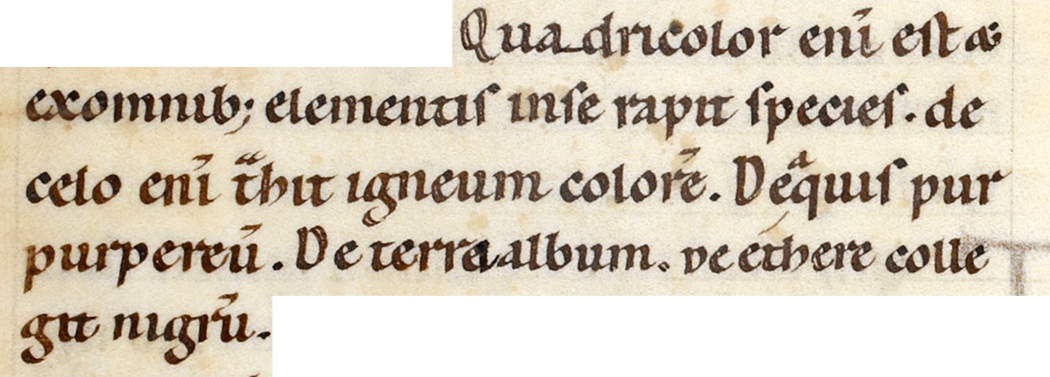 Qua dricolor eni̅ est &
exomnib; elementis inse rapit species. de
celo eni̅ tᵃhit igneum colore̅. Deaquis pur
purpereu̅. De terra album. De ethere colle
git nigru̅.